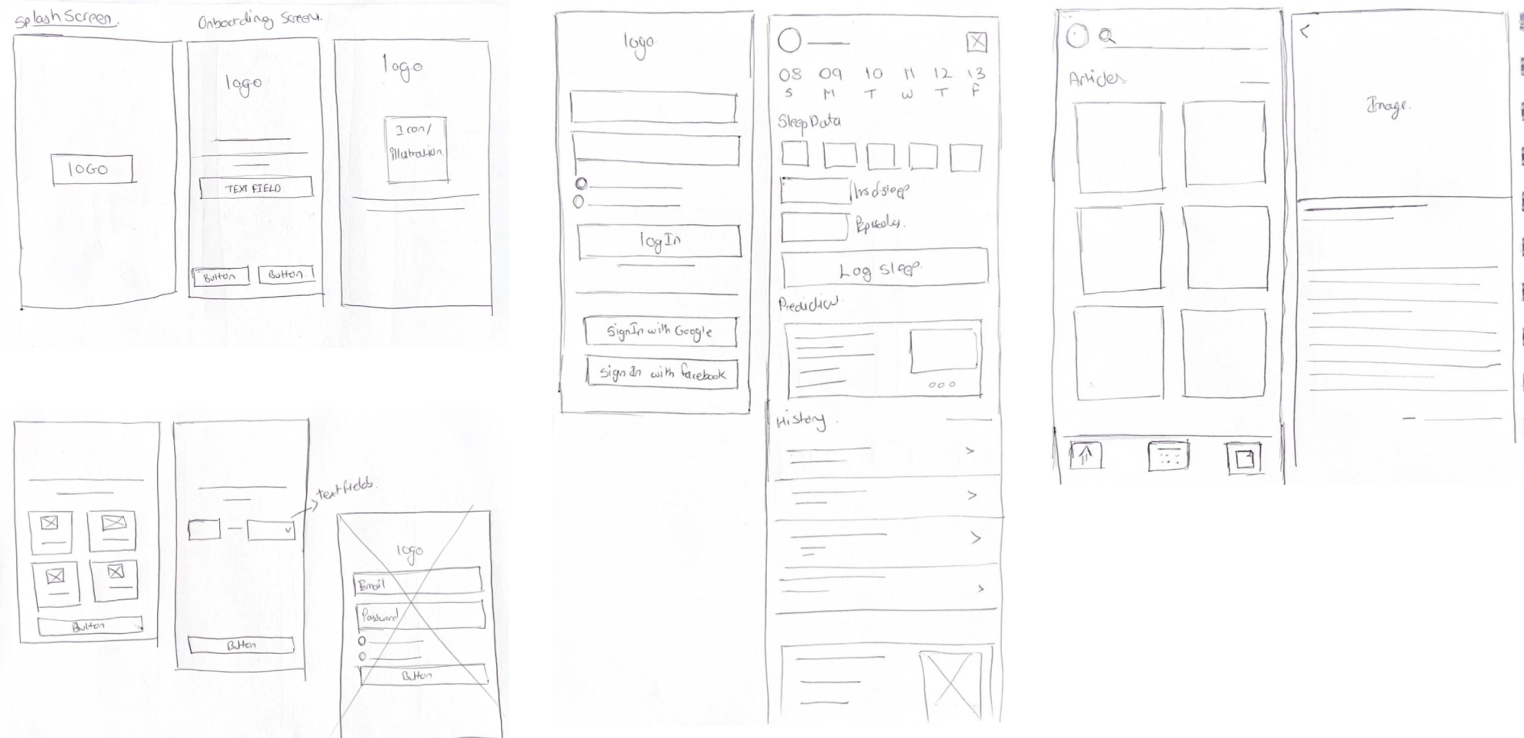 Splash Screen.
Onboarding Screens.
LOGO
logo
TEXT FIELD
Button
Button
logo
Icon/
illustration
Button
textfields.
Button
logo
Email
Password
Button
logo
log In
SignIn with Google
Sign In with facebook
08 09 10 11 12 13
S M T W T F
Sleep Data
hrs of sleep
Log sleep
History
Articles
Image.